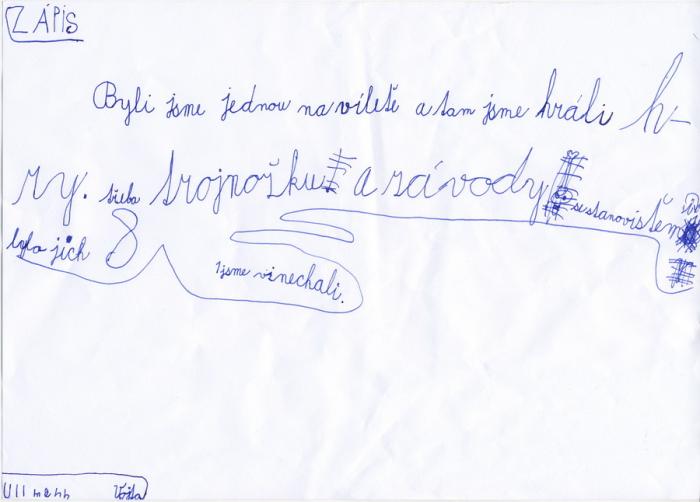 ZÁPIS
Byli jsme jednou na víletě a tam jsme hráli h-
ry. třeba trojnožku a závody se stanovištěm
bylo jich 8
1 jsme vinechali.
Ullmann Vojta